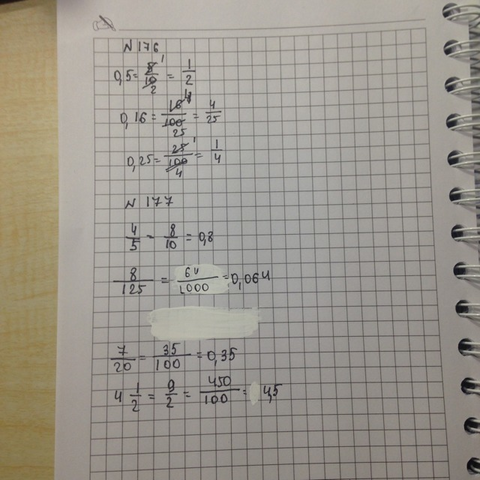 N 176
0,5 = 5/10 1 2 = 1/2
0,16 = 16/100 4 25 = 4/25
0,25 = 25/100 1 4 = 1/4
N 177
4/5 - 8/10 = 0,8
8/125 = 64/1000 = 0,064
7/20 = 35/100 = 0,35
4 1/2 = 9/2 = 450/100 = 4,5